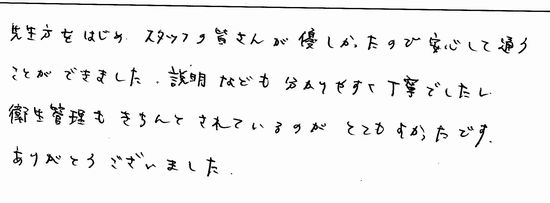 先生方をはじめ、スタッフの皆さんが優しかったので安心して通う
ことができました。説明なども分かりやすく丁寧でしたし
衛生管理もきちんとされているのがとてもよかったです。
ありがとうございました。